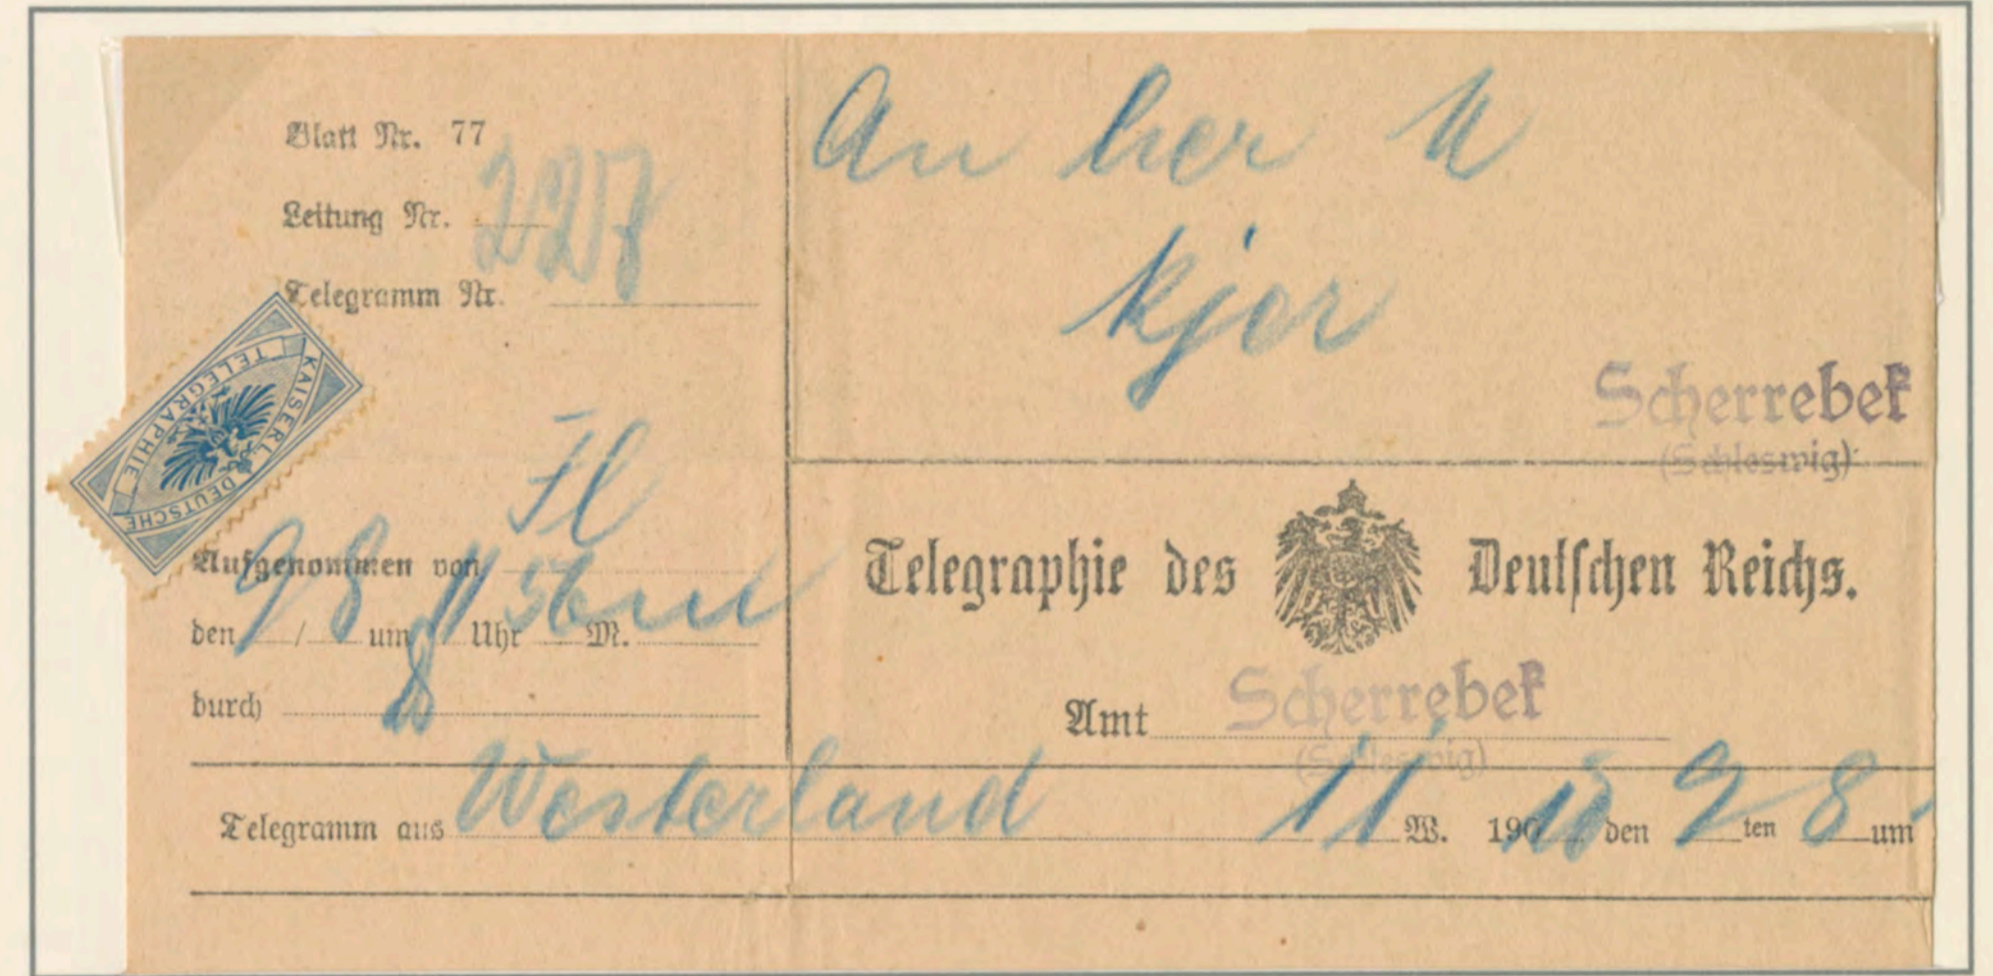 Blatt Nr. 77
Leitung Nr. 227
Telegramm Nr.
KAISERL. DEUTSCHE
TELEGRAPHIE
Fl
Aufgenommen von
den 9/8 um 11 Uhr 56 M.
durch
An her
kjer
Scherrebek
(Schleswig)
Telegraphie des Deutschen Reichs.
Amt Scherrebek
(Schleswig)
Telegramm aus Westerland 11 W. 190 den 9 ten 8 um